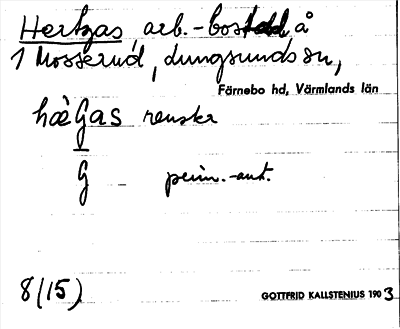 Hertzas arb.-bostad å
1 Mosserud, Lungsunds sn,
Färnebo hd, Värmlands län
hæ̀Gas renskr
G penn.-ant.
8 (15)
GOTTFRID KALLSTENIUS 1903